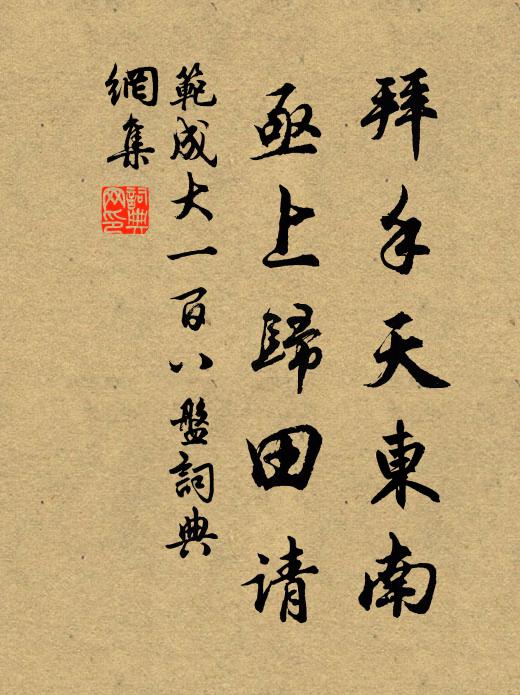 拜手天東南
亟上歸田请
範成大一百八盤詞典
網集
詞典网印